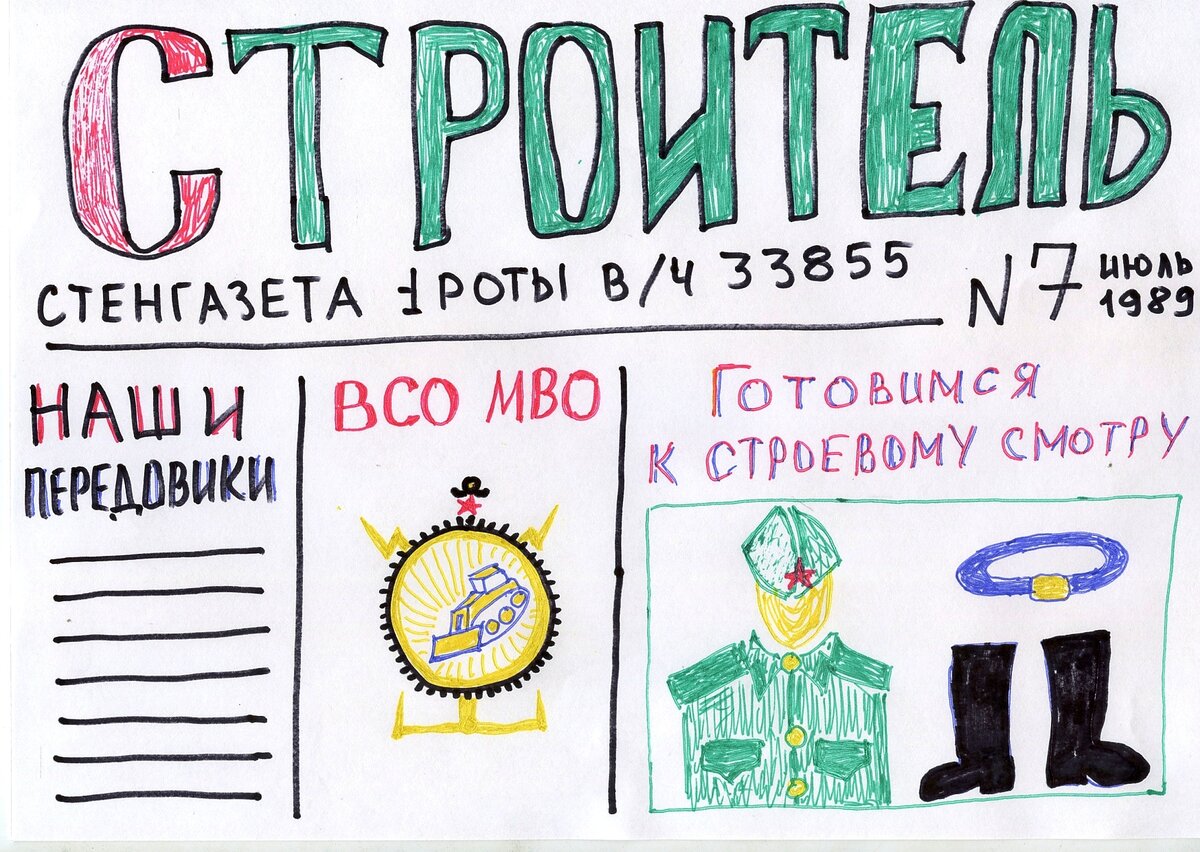 СТРОИТЕЛЬ
СТЕНГАЗЕТА 1 РОТЫ В/Ч 33855
N 7 ИЮЛЬ
1989
НАШИ
ПЕРЕДОВИКИ
ВСО МВО
ГОТОВИМСЯ
К СТРОЕВОМУ СМОТРУ